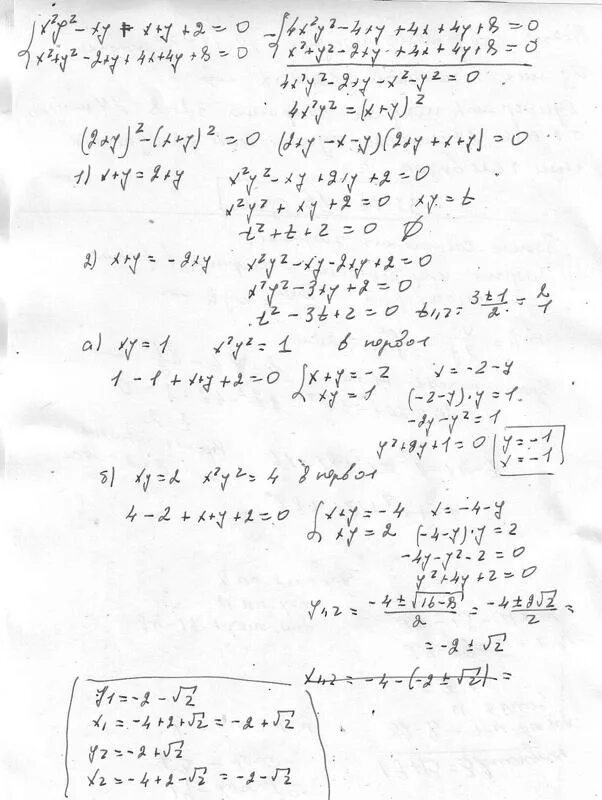 {x²y² - xy + x+y+2=0
x²+y²-2xy+4x+4y+8=0
- {4x²y²-4xy+4x+4y+8=0
x²+y²-2xy+4x+4y+8=0
4x²y²-2xy-x²-y²=0
4x²y²=(x+y)²
(2xy)²-(x+y)²=0 (2xy-x-y)(2xy+x+y)=0
1) x+y=2xy x²y²-xy+2xy+2=0
x²y²+xy+2=0 xy=t
t²+t+2=0 Ø
2) x+y=-2xy x²y²-xy-2xy+2=0
x²y²-3xy+2=0
t²-3t+2=0 t1,2=(3±1)/2= 2 1
а) xy=1 x²y²=1 в первое
1-1+x+y+2=0 {x+y=-2 x=-2-y
xy=1 (-2-y)·y=1
-2y-y²=1
y²+2y+1=0 y=-1
x=-1
б) xy=2 x²y²=4 в первое
4-2+x+y+2=0 {x+y=-4 x=-4-y
xy=2 (-4-y)·y=2
-4y-y²-2=0
y²+4y+2=0
y1,2=(-4±√(16-8))/2=(-4±2√2)/2=
=-2±√2
x1,2=-4-(-2±√2)=
y1=-2-√2
x1=-4+2+√2=-2+√2
y2=-2+√2
x2=-4+2-√2=-2-√2